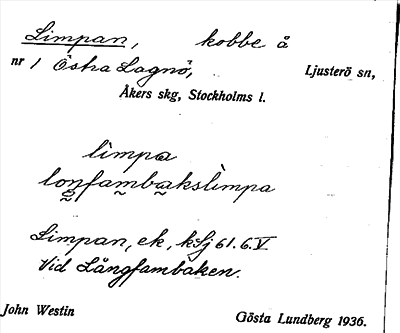 Limpan, kobbe å
nr 1 Östra Lagnö, Ljusterö sn,
Åkers skg, Stockholms l.
limpa
loŋfambakslimpa
Limpan, ek, kSj 61.6.V
Vid Långfambaken.
John Westin Gösta Lundberg 1936.